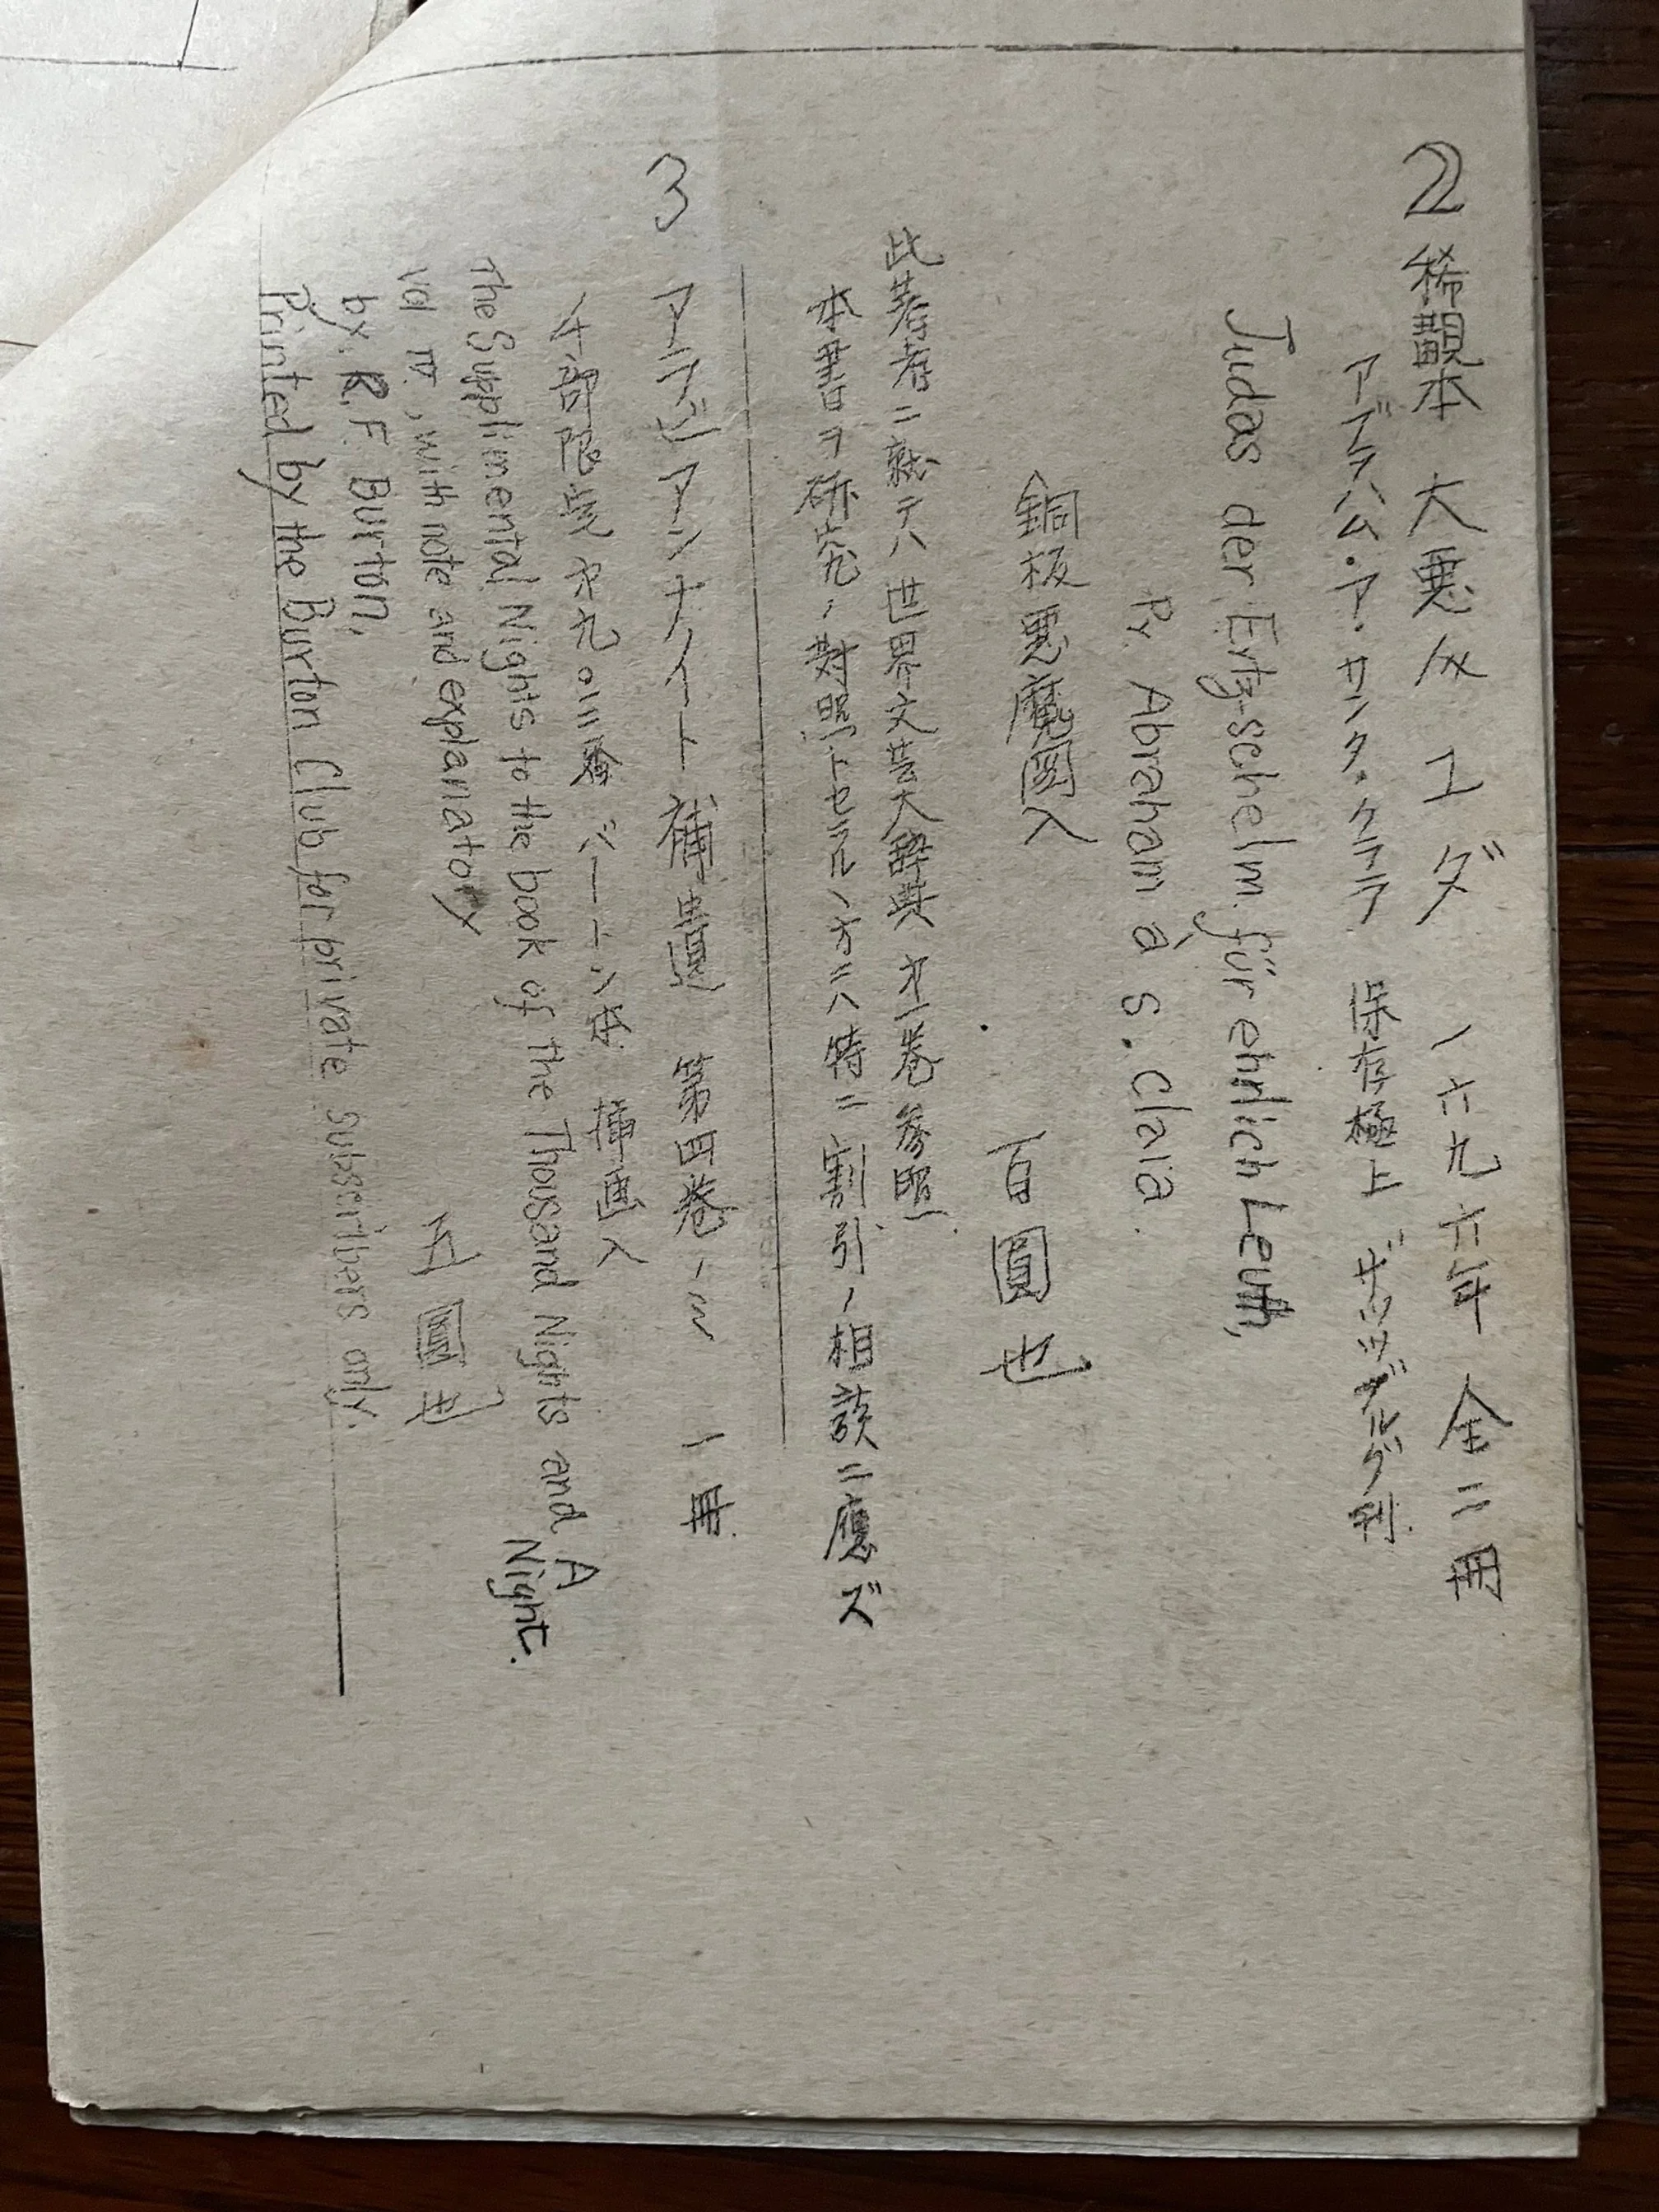 2 稀覯本 大悪人ユダ 一六九六年 全二冊
アブラハム・ア・サンタ・クララ 保存極上 ザッツブルグ刊.
Judas der Ertz-schelm für ehrlich Leuth,
Pr. Abraham à s. Claia.
銅板悪魔図入
百圓也
此著者ニ就テハ世界文芸大辞典 才一巻参照.
本書ヲ研究ノ対照トセラルノ方ニハ特ニ割引ノ相談ニ應ズ
3 アラビアンナイト補遺 第四巻ノミ 一冊.
千部限定 才九〇三番 挿画入
The Supplimental Nights to the book of the Thousand Nights and A Night.
vol IV, with note and explanatory
by. R. F. Burton,
五圓也
Printed by the Burton Club for private subscribers only.